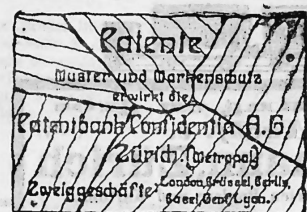 Patente
Muster und Markenschutz
erwirkt die
Patentbank Confidentia A.G.
Zürich (Metropol)
Zweiggeschäfte: London, Brüssel, Berlin,
Basel, Genf, Lyon.